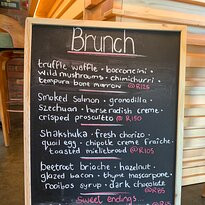 Brunch
truffle waffle • bocconcini •
wild mushrooms • chimichurri •
tempura bone marrow @ R125
Smoked salmon • granadilla •
Szechuan • horseradish creme •
crisped prosciutto @ R150
Shakshuka • fresh chorizo •
quail egg • chipotle creme fraîche •
toasted mieliebread @ R105
beetroot brioche • hazelnut •
glazed bacon • thyme mascarpone •
rooibos syrup • dark chocolate
Sweet endings...